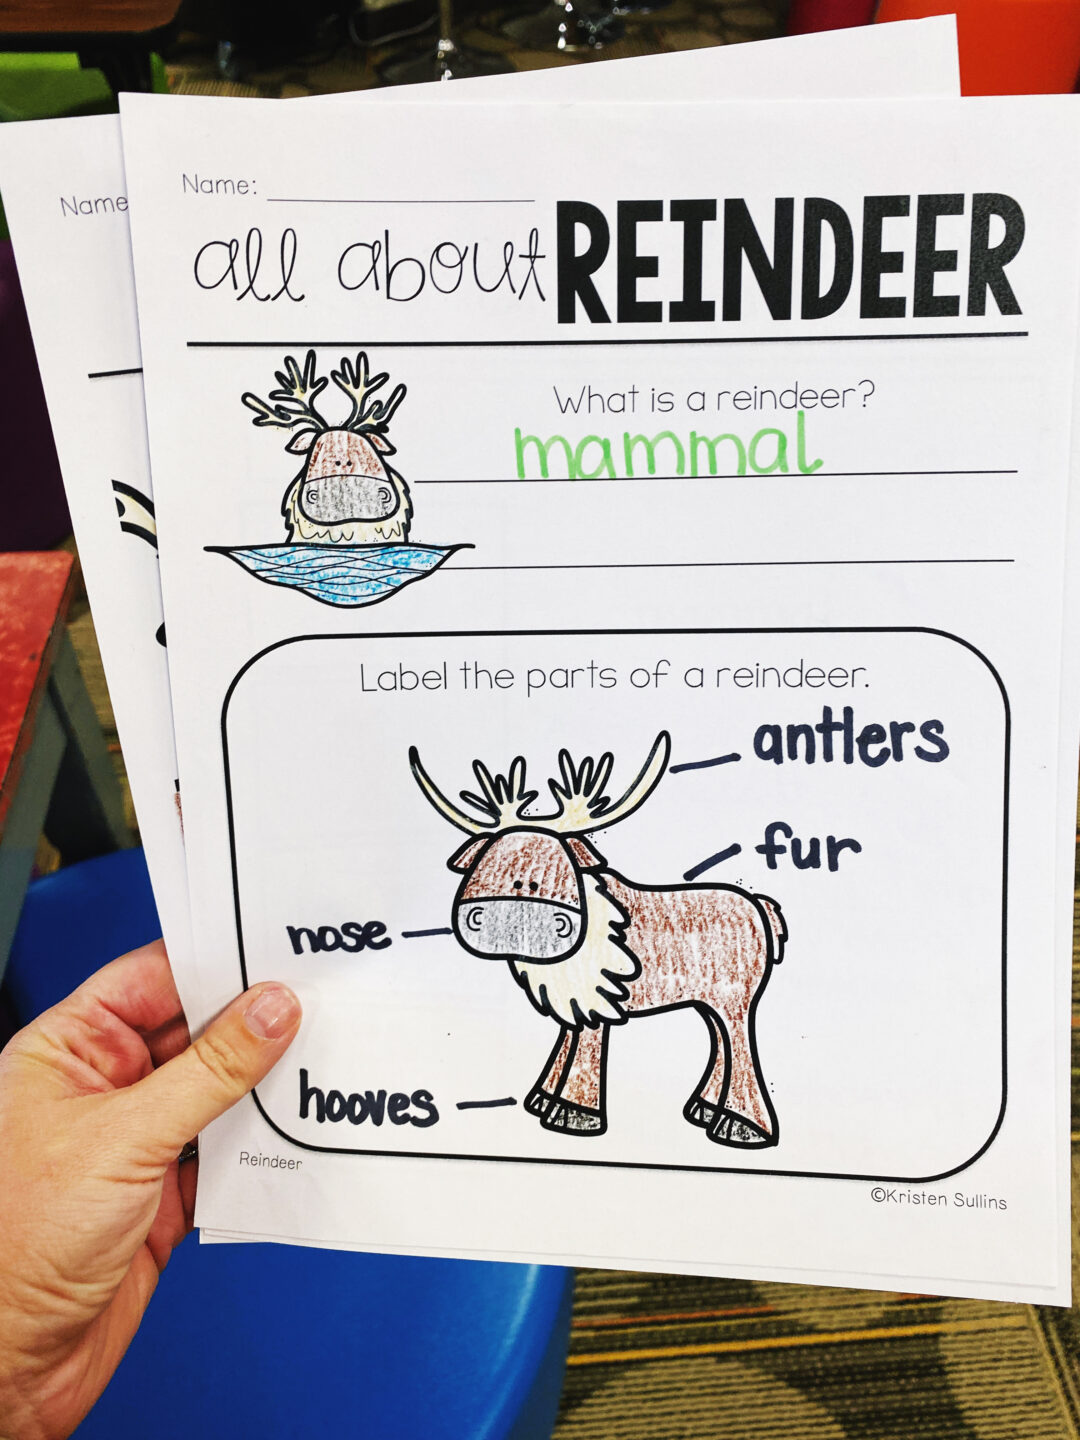 Name
Name:
all about REINDEER
What is a reindeer?
mammal
Label the parts of a reindeer.
antlers
fur
nose
hooves
Reindeer
©Kristen Sullins